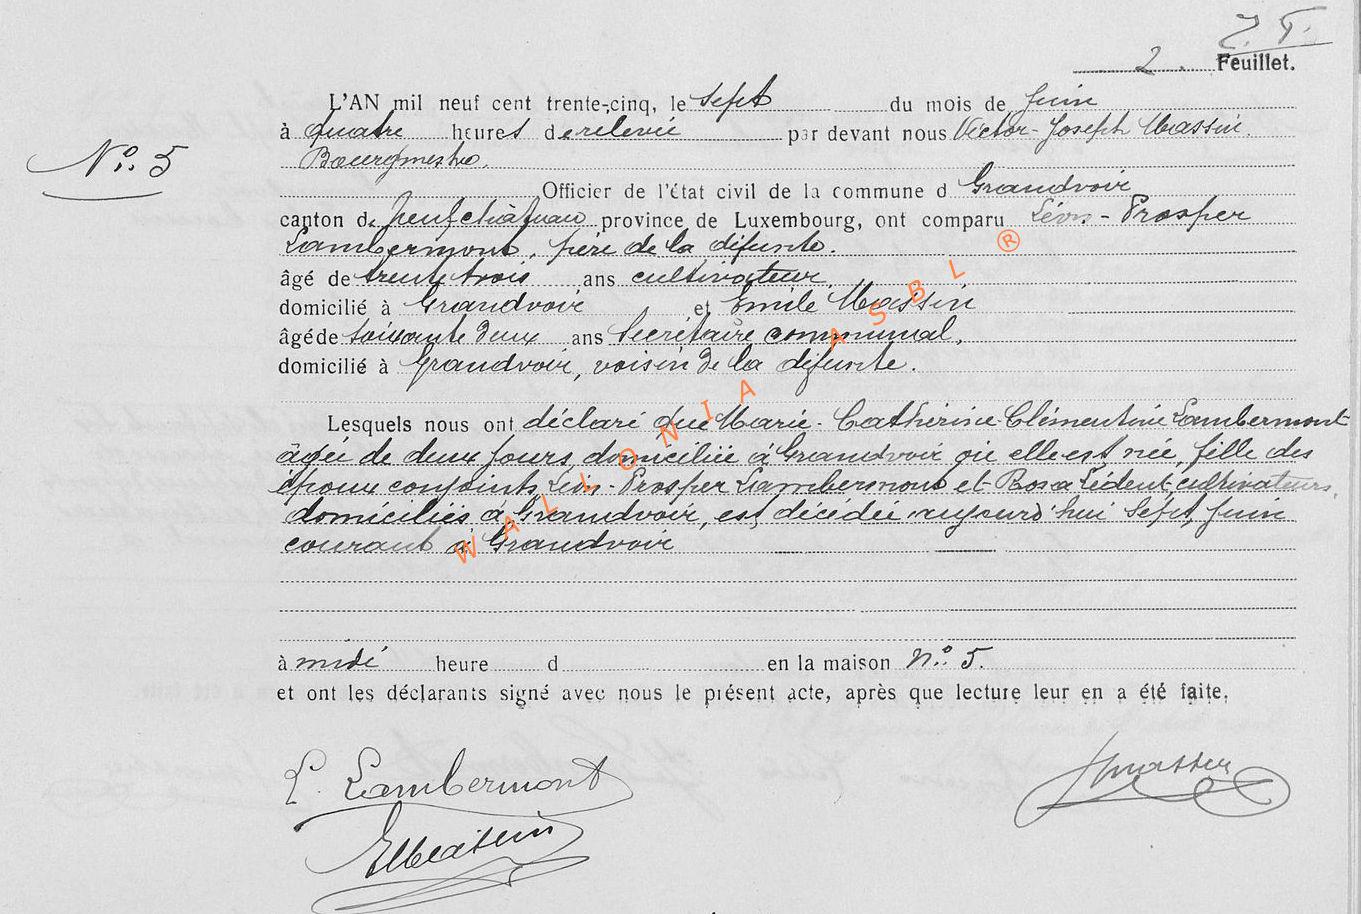 J. F.
2. Feuillet.
L'AN mil neuf cent trente-cinq, le sept du mois de juin
à quatre heures de relevée par devant nous Victor-Joseph Massin.
N° 5
Bourgmestre.
Officier de l'état civil de la commune d Grandvoir
canton de Neufchâteau province de Luxembourg, ont comparu Léon-Prosper
Lambermont, père de la défunte.
âgé de trente trois ans cultivateur,
domicilié à Grandvoir et Emile Massin
âgé de soixante deux ans Secrétaire communal,
domicilié à Grandvoir, voisin de la défunte.
Lesquels nous ont déclaré que Marie-Cathérine Clémentine Lambermont
âgée de deux jours, domiciliée à Grandvoir où elle est née, fille des
époux conjoints Léon-Prosper Lambermont et Rosa Lédent cultivateurs,
domiciliés à Grandvoir, est décédée aujourd'hui sept juin
courant à Grandvoir
à midi heure d en la maison N° 5.
et ont les déclarants signé avec nous le présent acte, après que lecture leur en a été faite.
L. Lambermont
EMassin
WALLONIA ASBL ®